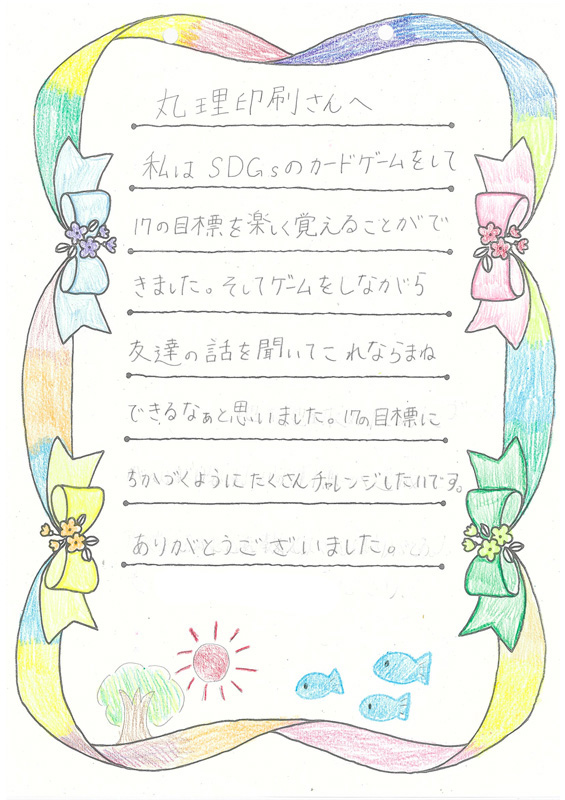 丸理印刷さんへ
私はSDGsのカードゲームをして
17の目標を楽しく覚えることがで
きました。そしてゲームをしながら
友達の話を聞いてこれならまね
できるなぁと思いました。17の目標に
ちかづくようにたくさんチャレンジしたいです。
ありがとうございました。